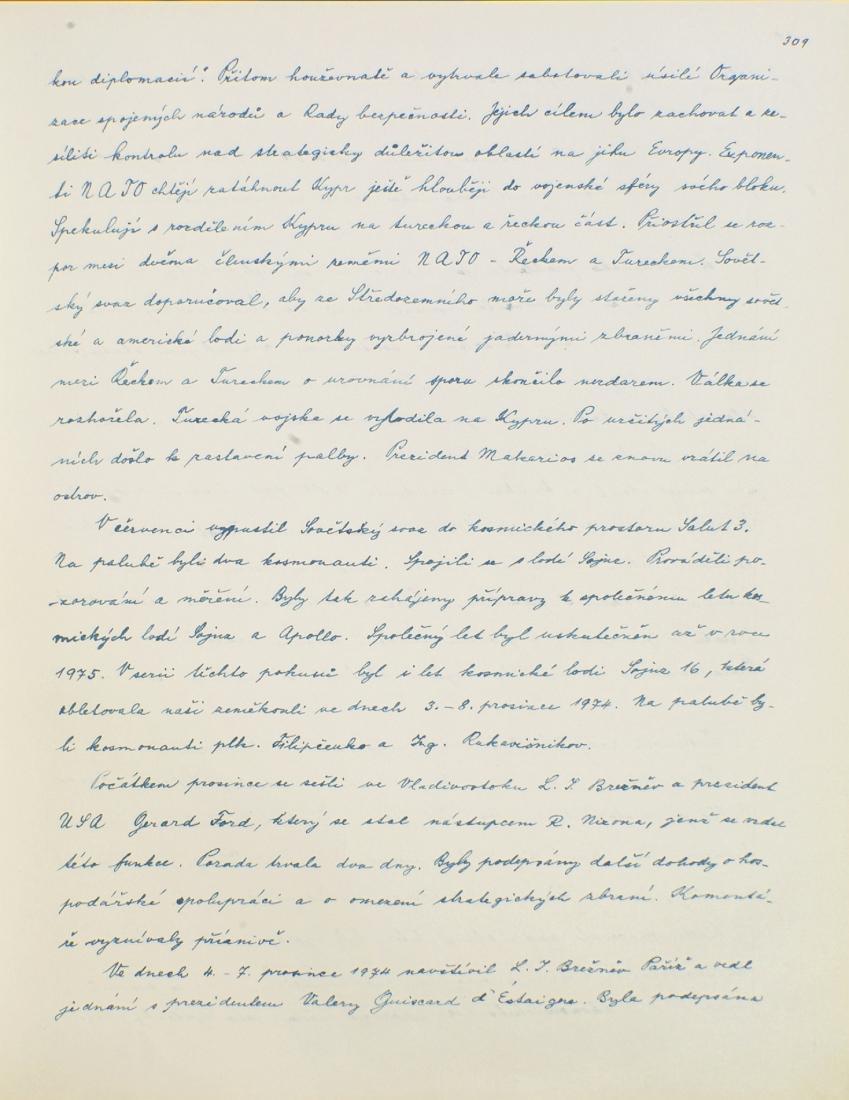 309
kou diplomacií". Přitom houževnatě a vytrvale sabotovali úsilí Organi-
zace spojených národů a Rady bezpečnosti. Jejich cílem bylo zachovat a ze-
síliti kontrolu nad strategicky důležitou oblastí na jihu Evropy. Exponen-
ti NATO chtějí zatáhnout Kypr ještě hlouběji do vojenské sféry svého bloku.
Spekulují s rozdělením Kypru na tureckou a řeckou část. Přiostřil se roz-
por mezi dvěma členskými zeměmi NATO - Řeckem a Tureckem. Sovět-
ský svaz doporučoval, aby ze Středozemního moře byly staženy všechny sovět
ské a americké lodi a ponorky vyzbrojené jadernými zbraněmi. Jednání
mezi Řeckem a Tureckem o urovnání sporu skončilo nezdarem. Válka se
rozhořela. Turecká vojska se vylodila na Kypru. Po určitých jedná-
ních došlo k zastavení palby. Prezident Makarios se znovu vrátil na
ostrov.
V červenci vypustil Sovětský svaz do kosmického prostoru Salut 3.
Na palubě byli dva kosmonauti. Spojili se s lodí Sojuz. Prováděli po-
-zorování a měření. Byly tak zahájeny přípravy k společnému letu kos-
mických lodí Sojuz a Apollo. Společný let byl uskutečněn až v roce
1975. V serii těchto pokusů byl i let kosmické lodi Sojuz 16, která
obletovala naši zeměkouli ve dnech 3.-8. prosince 1974. Na palubě by-
li kosmonauti plk. Filipčenko a Ing. Rukavišnikov.
Počátkem prosince se sešli ve Vladivostoku L. I. Brežněv a prezident
USA Gerard Ford, který se stal nástupcem R. Nixona, jenž se vzdal
této funkce. Porada trvala dva dny. Byly podepsány další dohody o hos-
podářské spolupráci a o omezení strategických zbraní. Komentá-
ře vyznívaly příznivě.
Ve dnech 4. - 7. prosince 1974 navštívil L. I. Brežněv Paříž a vedl
jednání s prezidentem Valery Guiscard d'Éstaigne. Byla podepsána